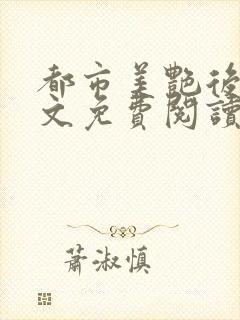 都市美艷後
文免費閱讀
蕭淑慎